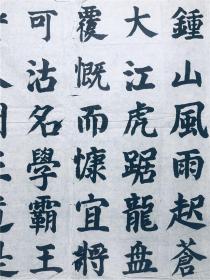 鍾山風雨起蒼
大江虎踞龍盘
覆慨而慷宜將
可沽名學霸王